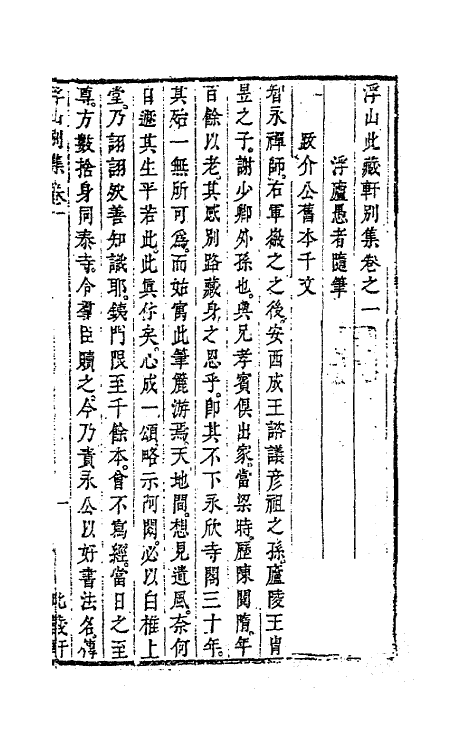 浮山此藏軒別集卷之一
浮廬愚者隨筆
跋介公舊本千文
智永禪師右軍徽之之後安西成王諮議彦祖之孫廬陵王胄
昱之子謝少卿外孫也與兄孝賓俱出家當梁時歷陳閱隋年
百餘以老其感別路藏身之恩乎卽其不下永欣寺閣三十年
其殆一無所可爲而始寓此筆簏游焉天地間想見遺風奈何
自遯其生平若此此眞仵矣心成一頌略示阿閦必以白椎上
堂乃詡詡然善知識耶鐵門限至千餘本曾不寫經當日之至
尊方數捨身同泰寺令羣臣贖之今乃責永公以好書法名傳
浮山別集卷一
一
此藏軒